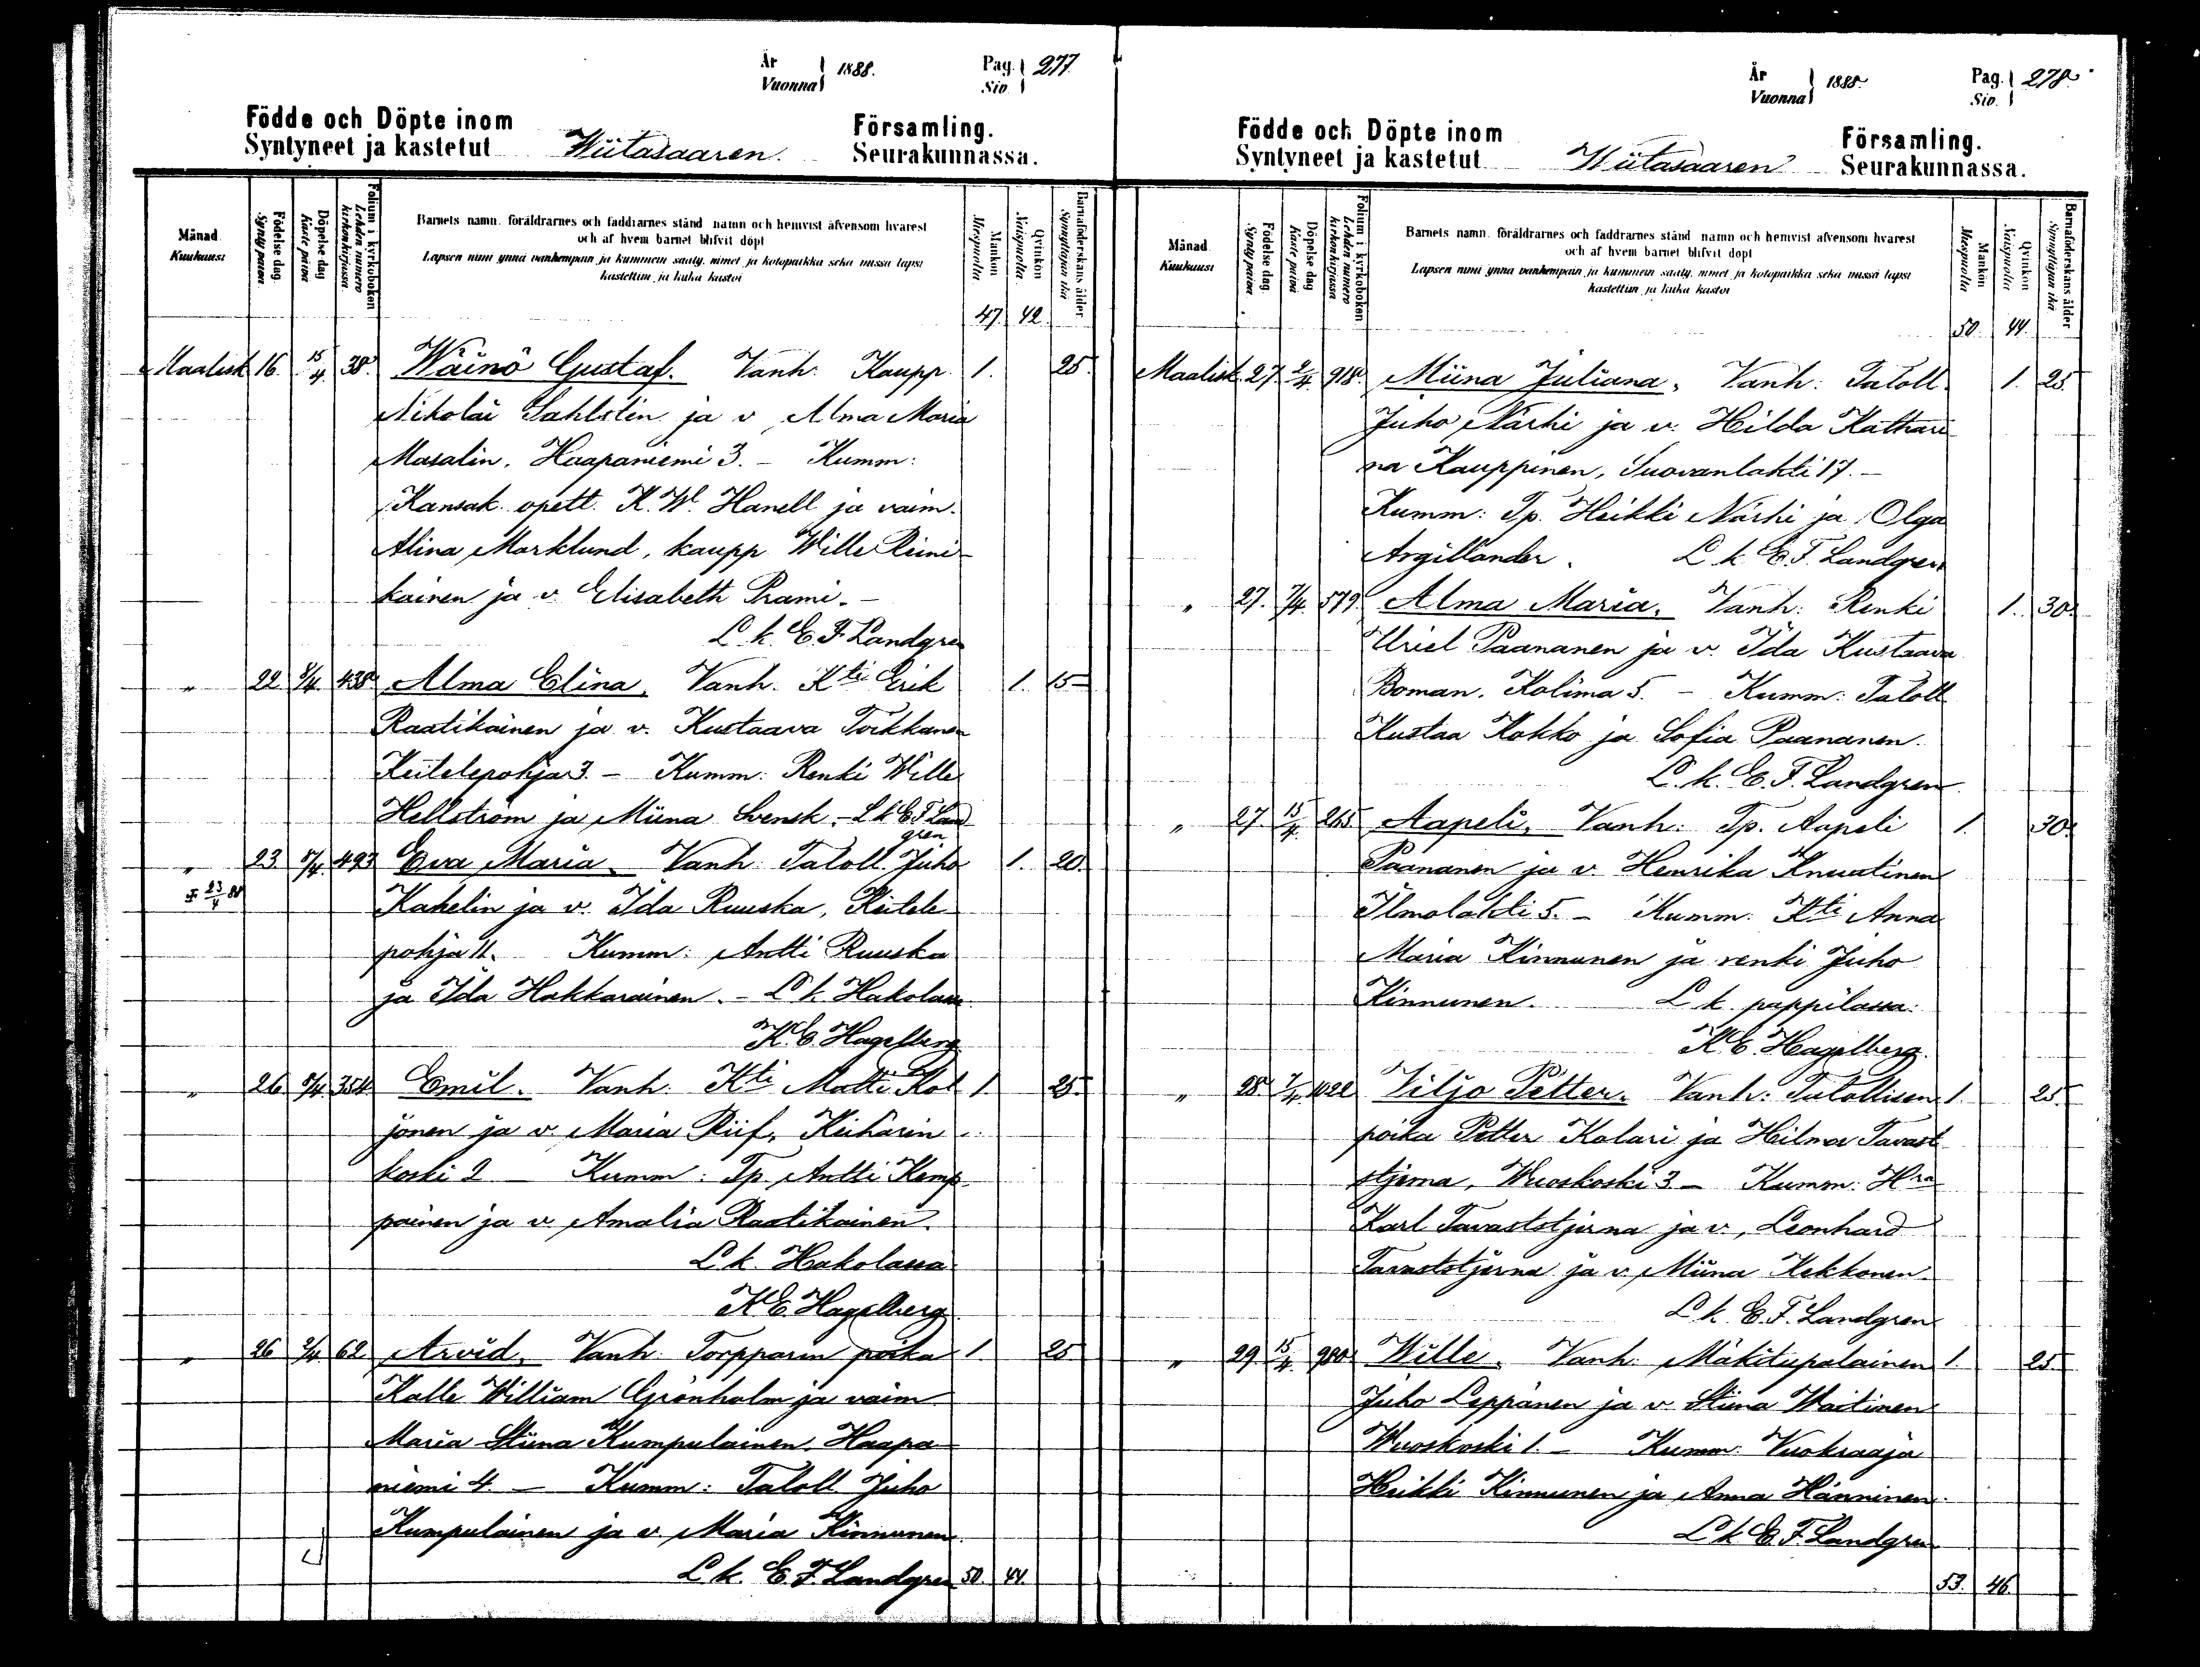 År Vuonna 1888. Pag. Siv. 277
Födde och Döpte inom Församling.
Syntyneet ja kastetut Wiitasaaren. Seurakunnassa.
Månad Kuukausi
Födelse dag Synty päivä
Döpelse dag Kaste päivä
Folium i kyrkoboken Lehden numero kirkonkirjassa
Barnets namn, föräldrarnes och faddrarnes stånd namn och hemvist äfvensom hvarest
och af hvem barnet blifvit döpt
Lapsen nimi ynnä vanhempain ja kummein sääty, nimet ja kotopaikka sekä missä lapsi
kastettiin ja kuka kastoi
Mankön Miespuolia
Qvinkön Naispuolia
Barnaföderskans ålder Synnyttäjän ikä
47. 42.
Maalisk 16. 15/4 38. Wäinö Gustaf. Vanh. Kaupp. 1. 25.
Nikolai Sahlstén ja v. Alma Maria
Masalin. Haapaniemi 3. - Kumm:
Kansak. opett. K. W. Hanell ja vaim.
Alina Marklund, kaupp Wille Reini-
kainen ja v. Elisabeth Prami. -
L. k. E. F. Landgren
" 22 8/4 438 Alma Elina. Vanh. Kti Erik 1. 15
Raatikainen ja v. Kustaava Toikkanen
Keitelepohja 3. - Kumm: Renki Wille
Hellström ja Miina Svensk. - L k E F Land
gren
" 23 8/4 493 Eva Maria. Vanh. Taloll. Juho 1. 20.
23/4 88 Kahelin ja v. Ida Ruuska, Keitele
pohja 11. Kumm: Antti Ruuska
ja Ida Hakkarainen. - L k Hakolassa
K. E. Hagelberg
" 26 8/4 354 Emil. Vanh. Kti Matti Kol 1. 25.
jonen ja v. Maria Riif, Keihärin
koski 2 - Kumm: Tp. Antti Kemp
painen ja v. Amalia Raatikainen.
L. k. Hakolassa
K E Hagelberg
" 26 2/4 62 Arvid. Vanh. Torpparin poika 1. 25
Kalle William Grönholm ja vaim
Maria Stiina Kumpulainen. Haapa
niemi 4. - Kumm: Taloll Juho
Kumpulainen ja v. Maria Kinnunen.
L k. E. F. Landgren 50. 44.
År Vuonna 1888. Pag. Siv. 278
Födde och Döpte inom Församling.
Syntyneet ja kastetut Wiitasaaren Seurakunnassa.
Månad Kuukausi
Födelse dag Synty päivä
Döpelse dag Kaste päivä
Folium i kyrkoboken Lehden numero kirkonkirjassa
Barnets namn, föräldrarnes och faddrarnes stånd namn och hemvist äfvensom hvarest
och af hvem barnet blifvit döpt
Lapsen nimi ynnä vanhempain ja kummein sääty, nimet ja kotopaikka sekä missä lapsi
kastettiin ja kuka kastoi
Mankön Miespuolia
Qvinkön Naispuolia
Barnaföderskans ålder Synnyttäjän ikä
50. 44.
Maalisk. 27. 2/4 918. Miina Juliana. Vanh: Taloll. 1. 25.
Juho Närhi ja v. Hilda Kathari
na Kauppinen, Suovanlahti 17. -
Kumm: Tp. Heikki Närhi ja Olga
Argillander. L. k E. F. Landgren
" 27. 7/4 579. Alma Maria. Vanh: Renki 1. 30.
Uriel Paananen ja v. Ida Kustaava
Boman. Kolima 5. - Kumm: Taloll
Kustaa Kokko ja Sofia Paananen.
L. k. E. F. Landgren
" 27. 15/4 265 Aapeli. Vanh: Tp. Aapeli 1. 30.
Paananen ja v. Henrika Knuutinen
Ilmolahti 5. - Kumm: Kti Anna
Maria Kinnunen ja renki Juho
Kinnunen. L k. pappilassa.
K. E. Hagelberg.
" 28. 7/4 1022 Viljo Petter. Vanh: Talollisen 1. 25.
poika Petter Kalari ja Hilma Tavast
stjerna, Wuoskoski 3 - Kumm: Hra
Karl Tavaststjerna ja v., Leonhard
Tavaststjerna ja v. Miina Kekkonen.
L k. E. F. Landgren
" 29 15/4 980 Wille. Vanh. Mäkitupalainen 1. 25
Juho Leppänen ja v. Stiina Waitinen
Wuoskoski 1. - Kumm: Vuokraaja
Heikki Kinnunen ja Anna Hänninen.
L k E. F. Landgren
53. 46.